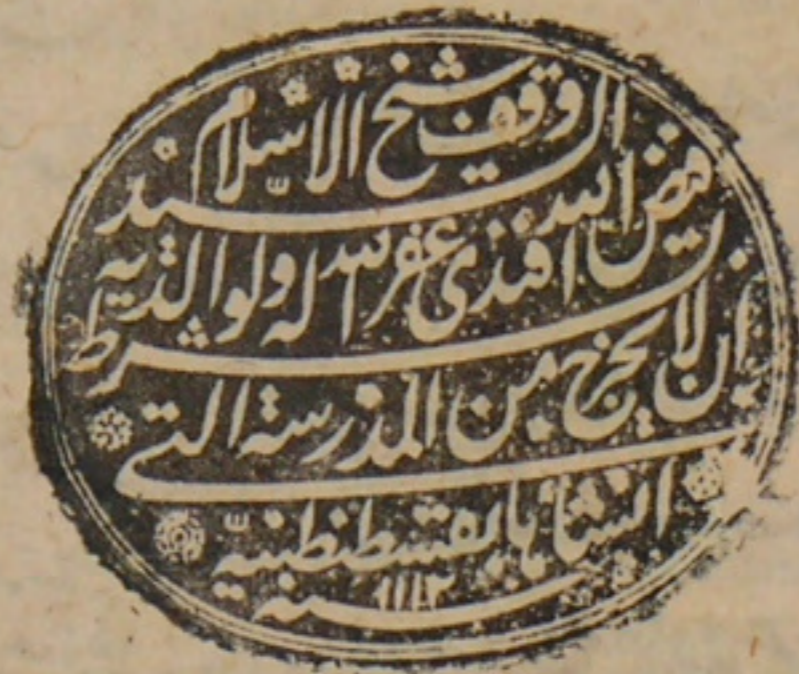 وقف شيخ الاسلام السيد
فيض الله افندى غفر الله له ولوالديه
بشرط ان لا يخرج من المدرسة التي
انشأها بقسطنطنيّة
سنة ١١١٢